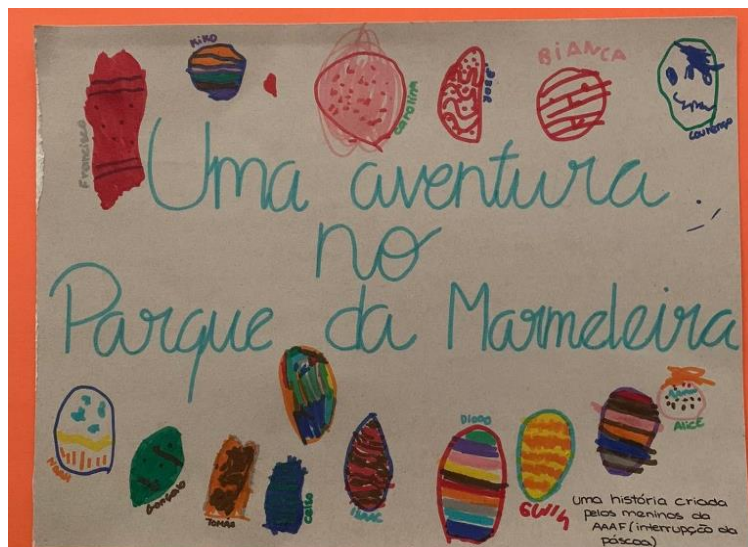 KIKO
Francisco
Carolina
JOSÉ
BIANCA
Lourenço
Uma aventura
no
Parque da Marmeleira
NOAH
Gonçalo
TOMÁS
Celso
ISAAC
DIOGO
ALICE
uma história criada
pelos meninos da
AAAF (interrupção da
páscoa)